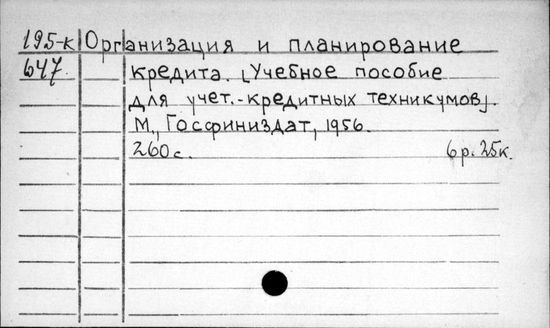 195-к Организация и планирование
647. кредита. [Учебное пособие
для учет.-кредитных техникумов].
М., Госфиниздат, 1956.
260 с. 6 р. 25 к.